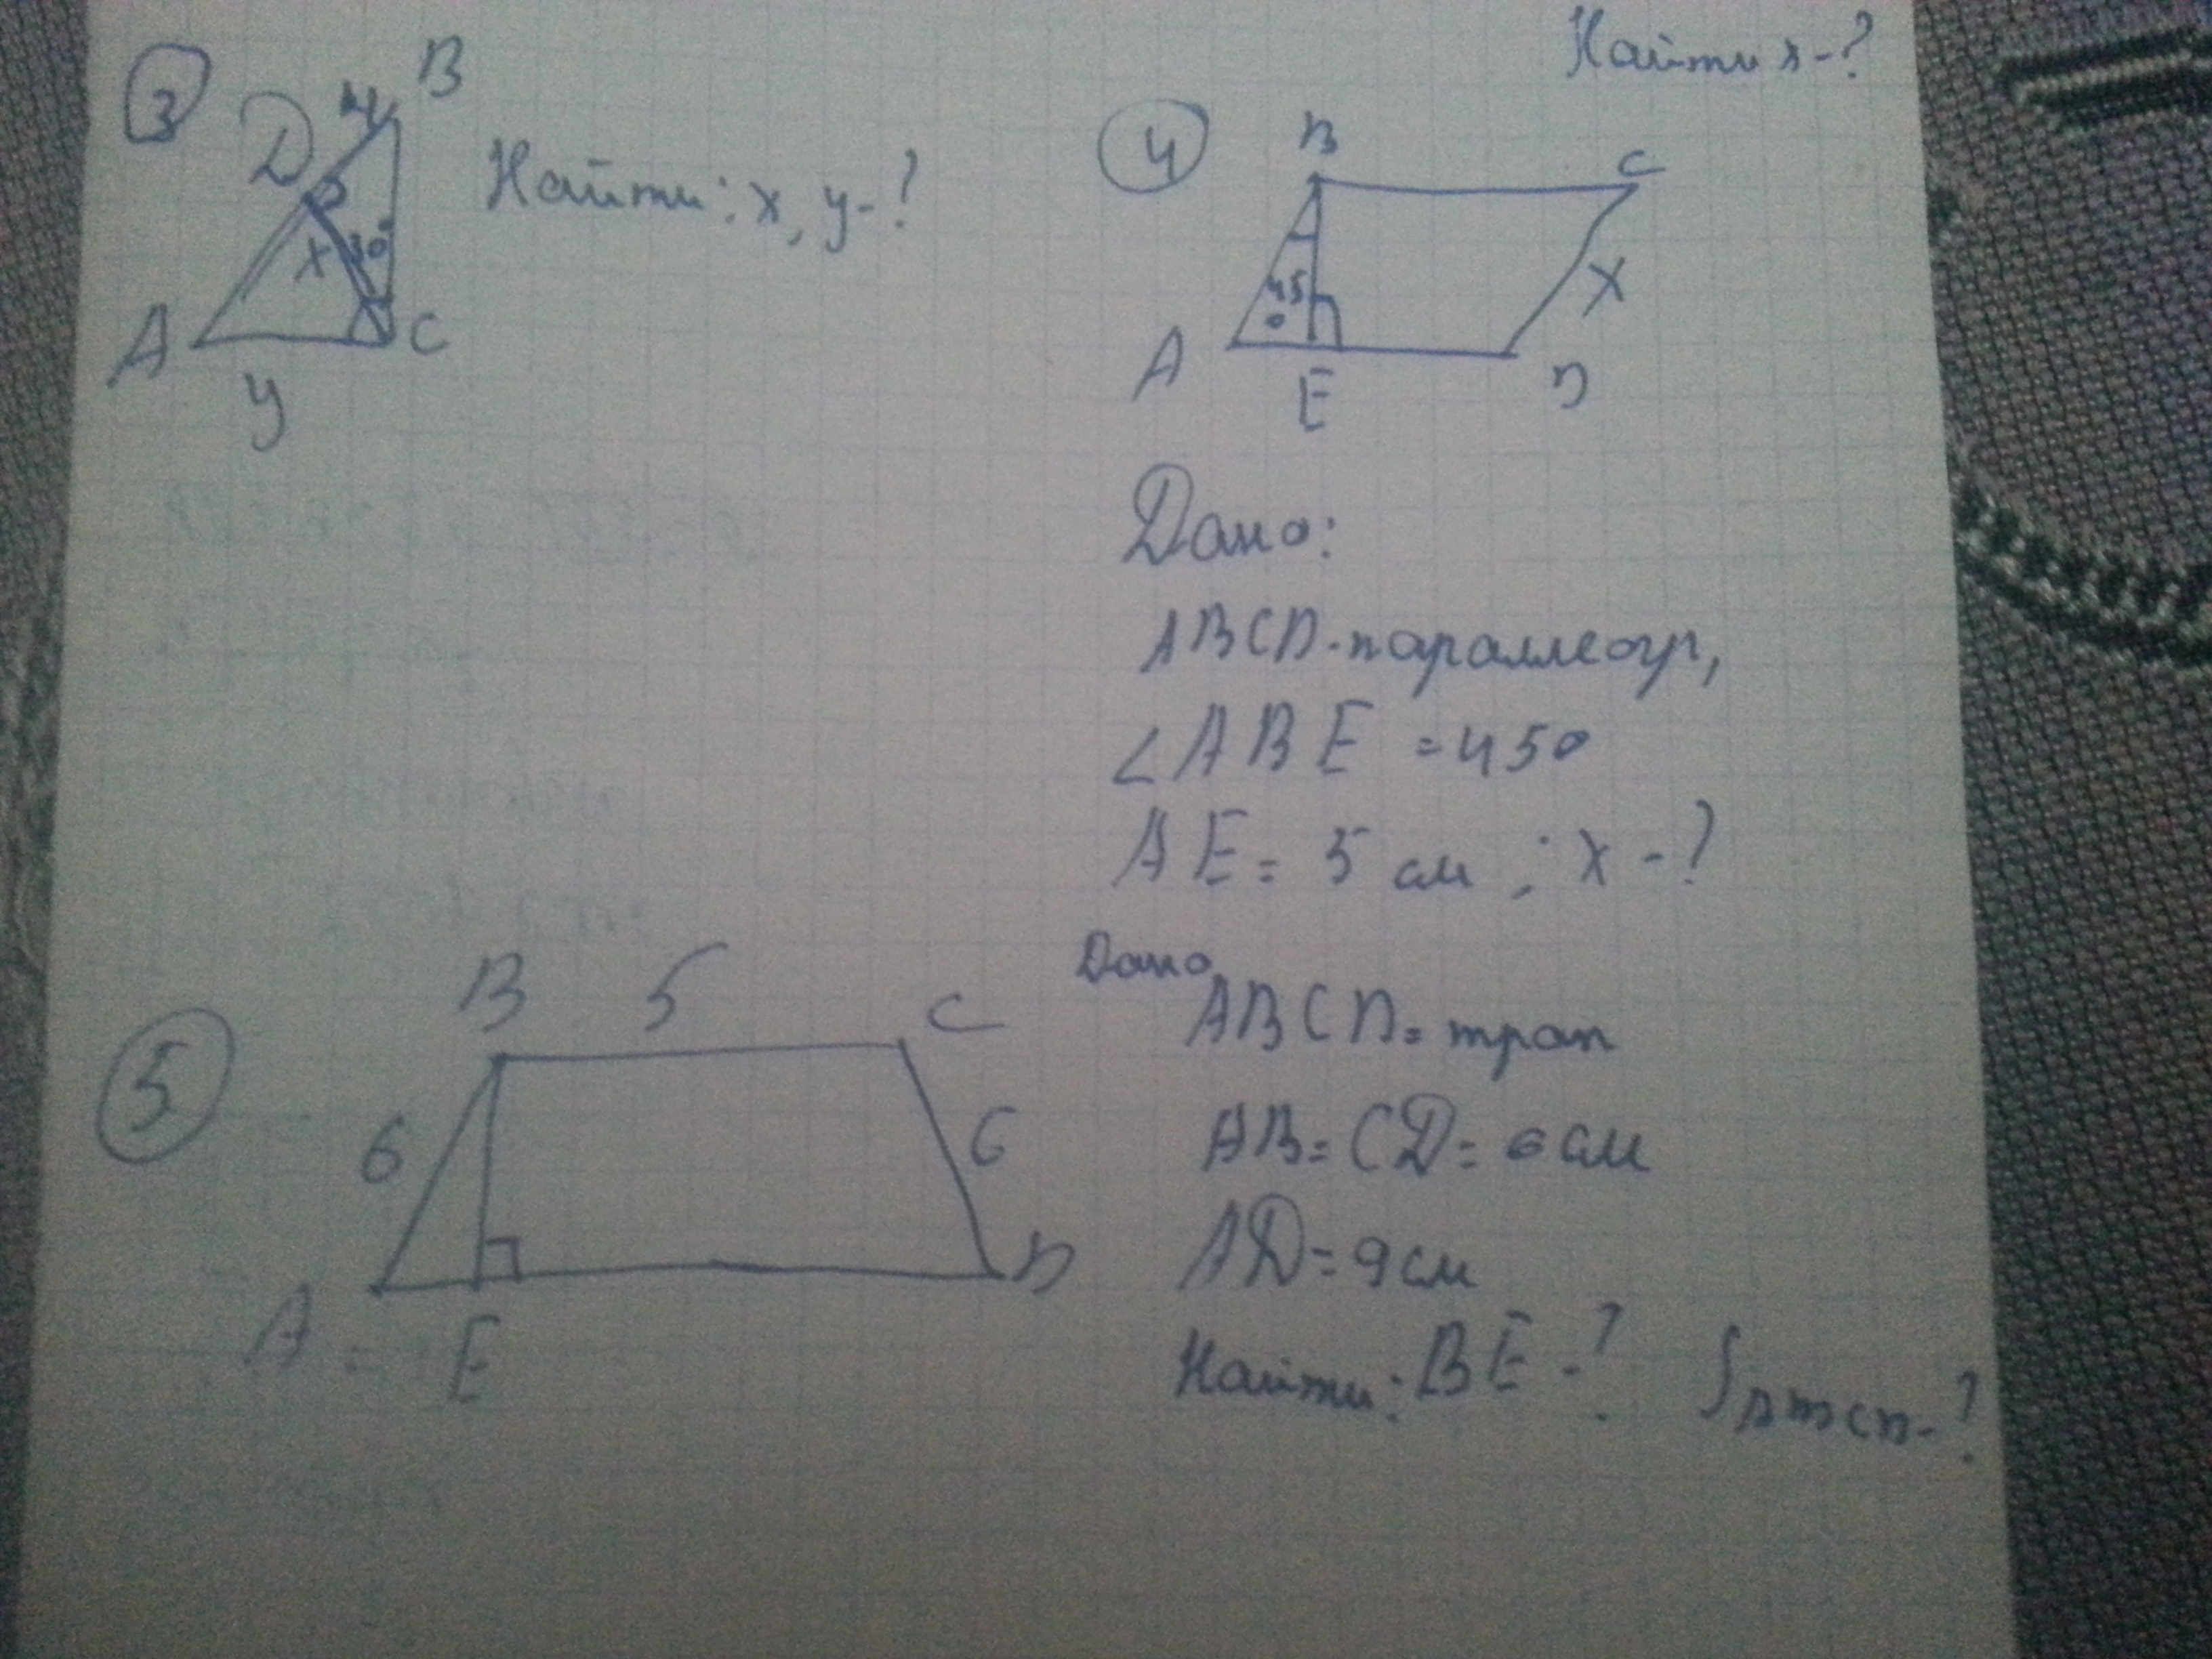 Найти x-?
3
B
4
D
Найти: x, y-?
x
30°
A
C
y
4
B
C
45°
x
A
E
D
Дано:
ABCD-параллеогр,
∠ABE =45°
AE = 5 см ; x -?
5
B
5
C
6
6
A
E
D
Дано
ABCD= трап
AB= CD= 6 см
AD= 9 см
Найти: BE -?